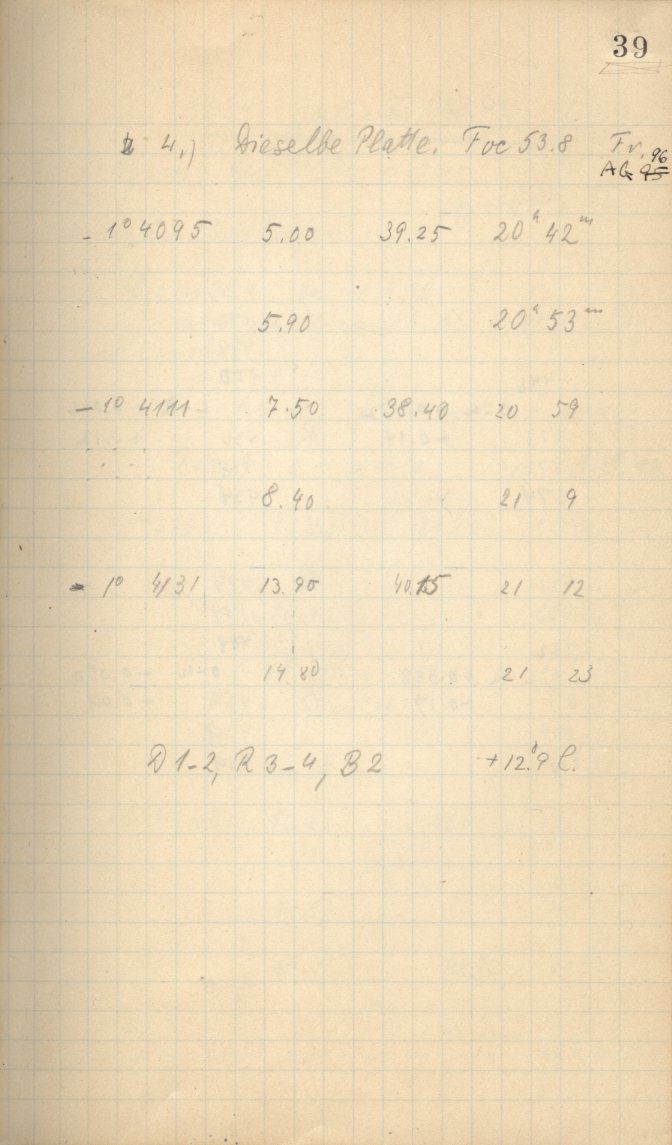 39
4.) Dieselbe Platte. Foc 53.8 Fr.
AG 95 96
- 1° 4095 5.00 39.25 20h 42m
5.90 20h 53m
- 1° 4111 7.50 38.40 20 59
8.40 21 9
- 1° 4131 13.90 40.15 21 12
14.80 21 23
D 1-2, R 3-4, B 2 +12.°9 C.